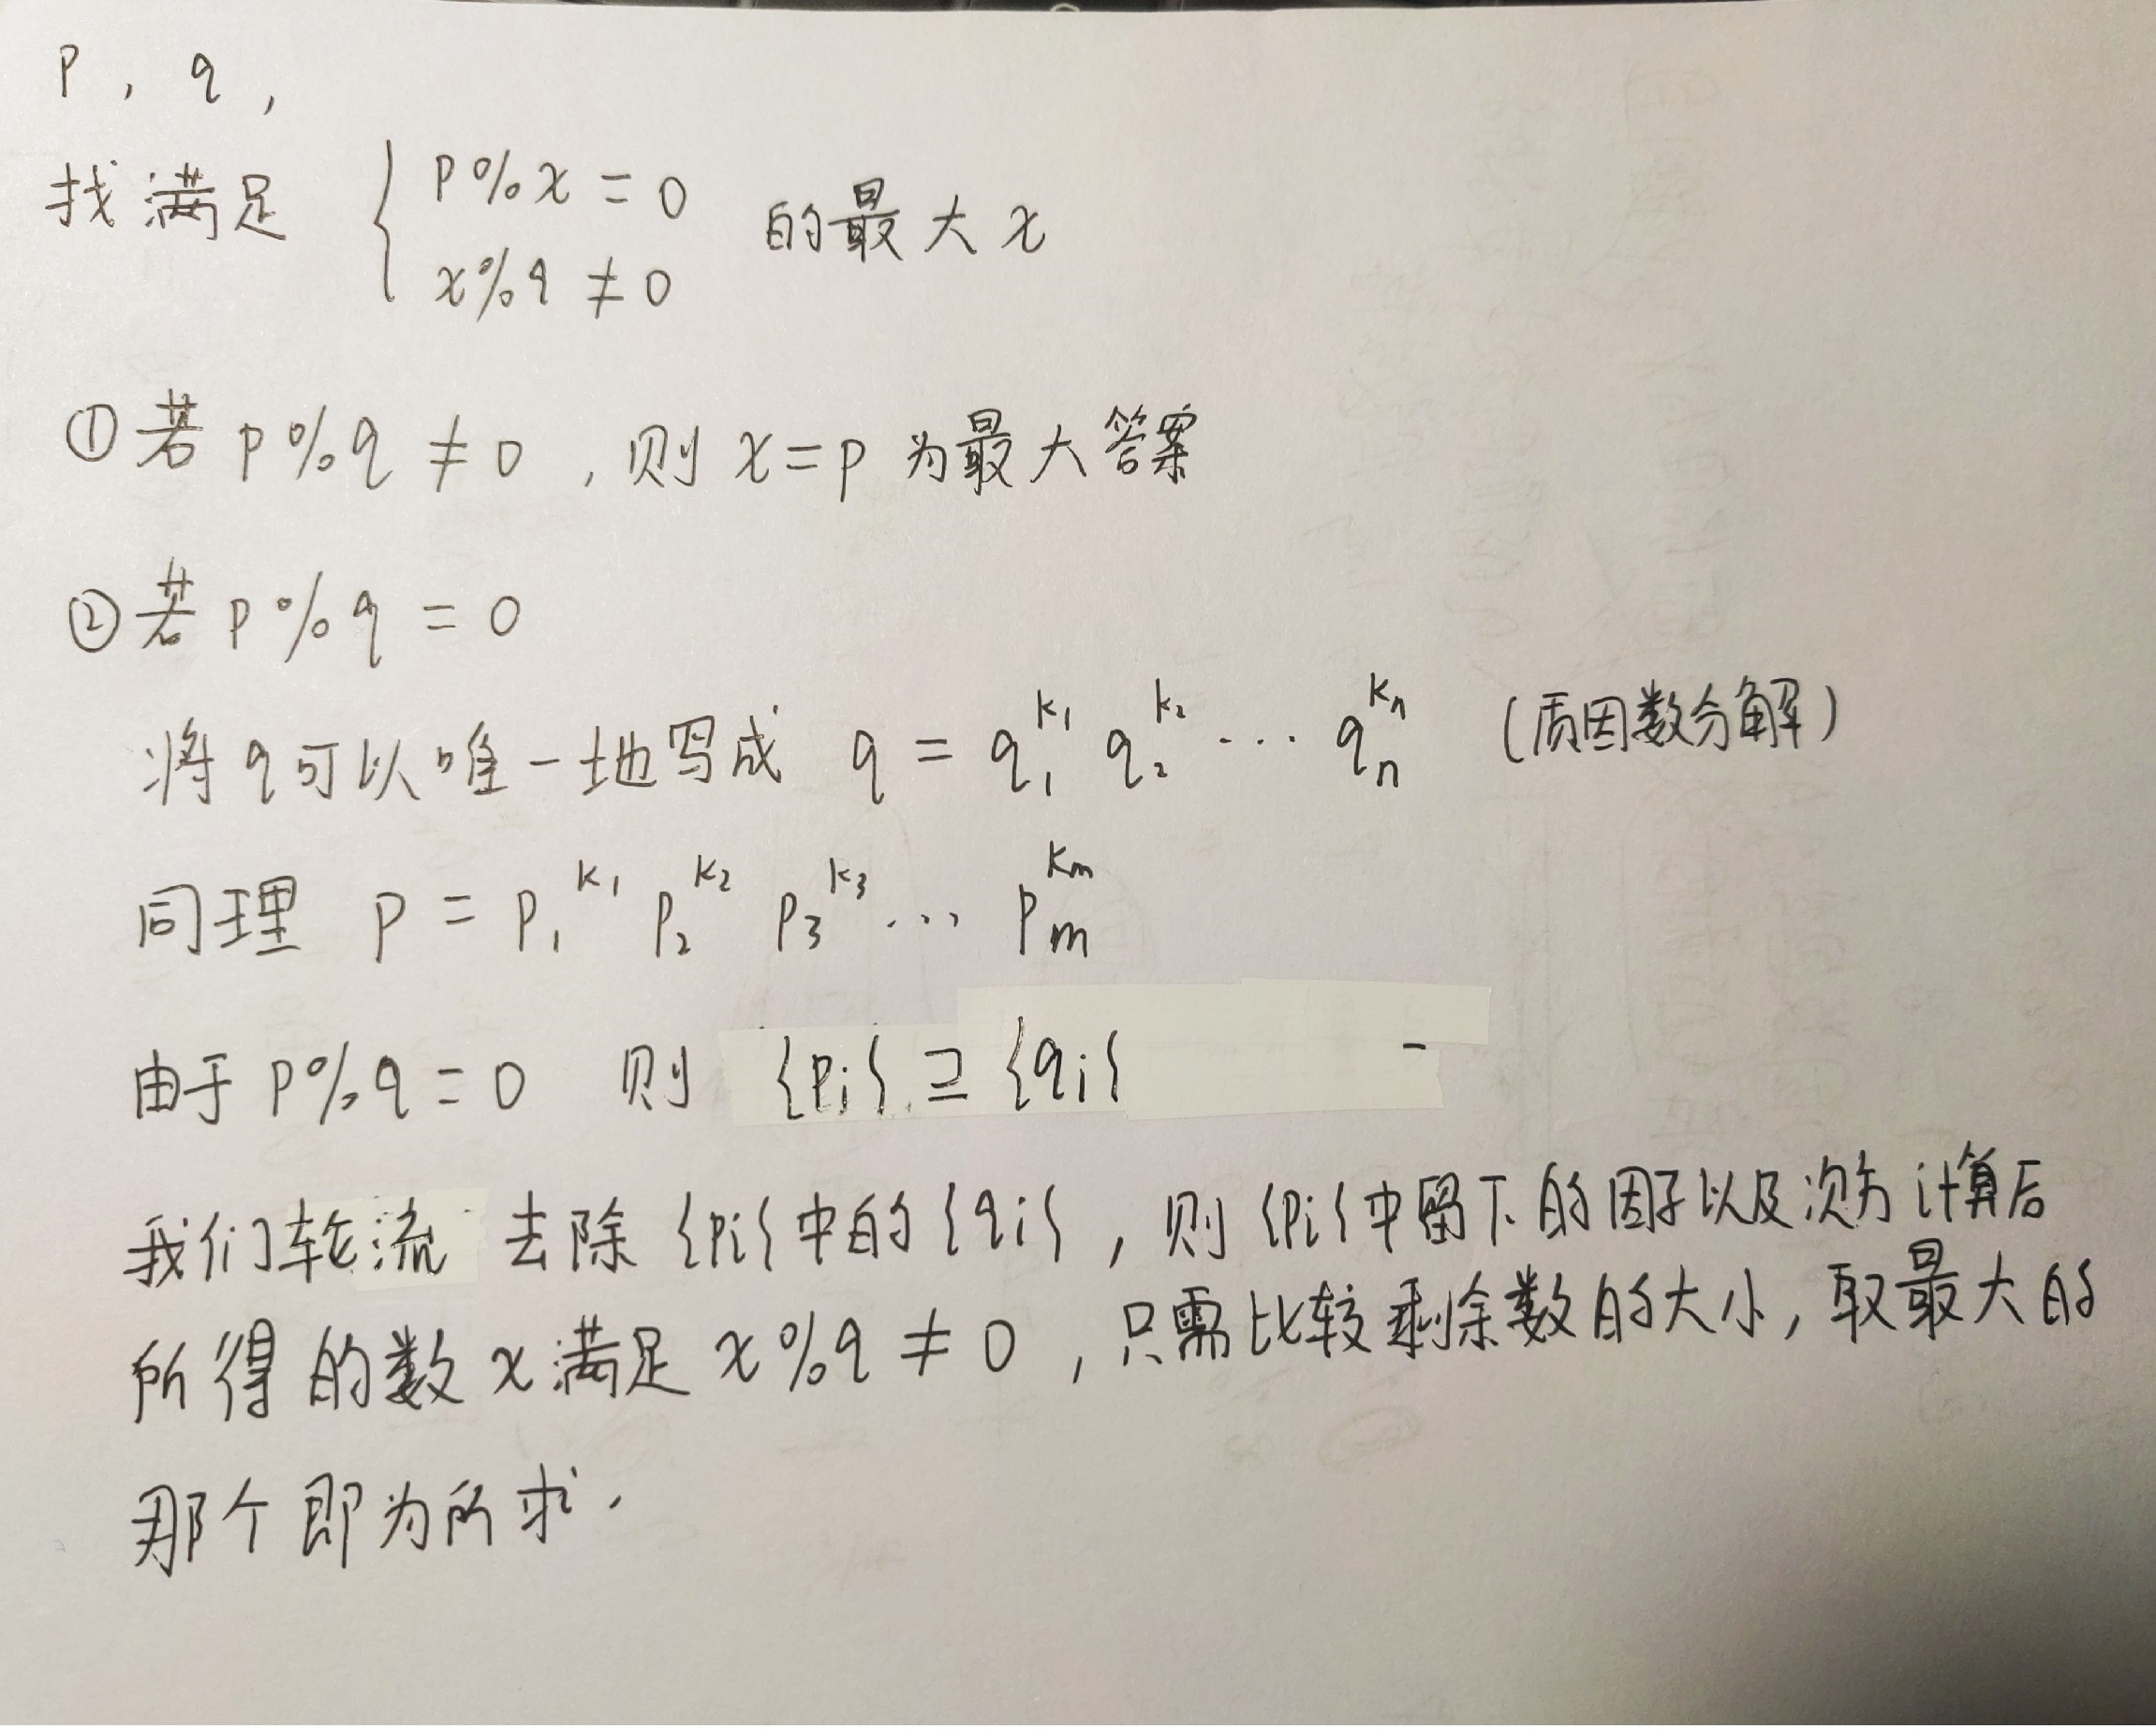 p , q ,
找满足 { p%x = 0 的最大x
x%q ≠ 0
①若 p%q ≠ 0 , 则 x=p 为最大答案
②若 p%q = 0
将q可以唯一地写成 q = q₁^k₁ q₂^k₂ ⋯ qₙ^kₙ (质因数分解)
同理 p = p₁^k₁ p₂^k₂ p₃^k₃ ⋯ pₘ^kₘ
由于 p%q = 0 则 {pi} ⊇ {qi} -
我们轮流 去除 {pi} 中的 {qi} , 则 {pi} 中留下的因子以及次方计算后
所得的数 x 满足 x%q ≠ 0 , 只需比较剩余数的大小, 取最大的
那个即为所求.